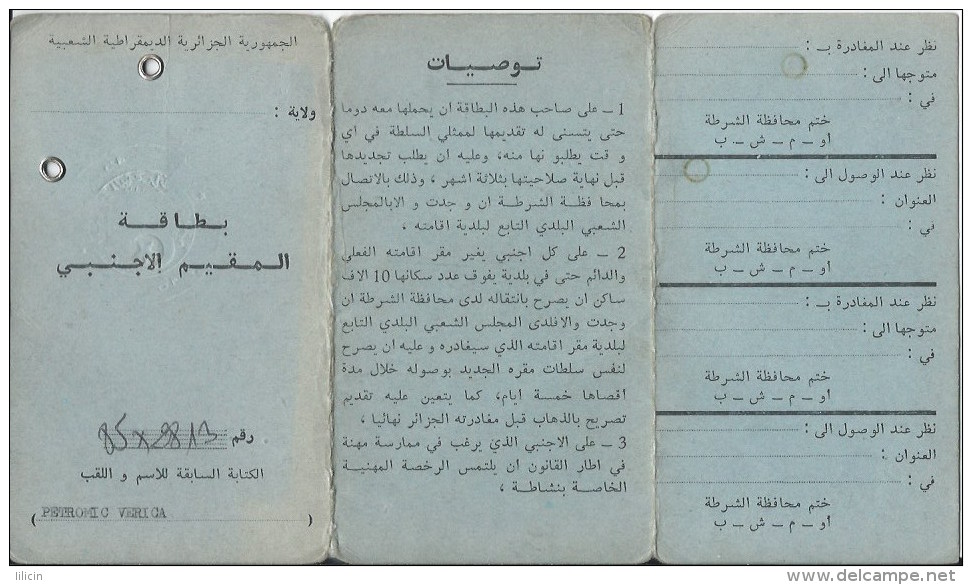 الجمهورية الجزائرية الديمقراطية الشعبية
ولاية :
بطاقة
المقيم الاجنبي
رقم 85x2813
الكتابة السابقة للاسم و اللقب
( PETROMIC VERICA )
توصيات
1 – على صاحب هذه البطاقة ان يحملها معه دوما
حتى يتسنى له تقديمها لممثلي السلطة في اي
و قت يطلبو نها منه، وعليه ان يطلب تجديدها
قبل نهاية صلاحيتها بثلاثة اشهر ، وذلك بالاتصال
بمحا فظة الشرطة ان و جدت و الابالمجلس
الشعبي البلدي التابع لبلدية اقامته ،
2 – على كل اجنبي يغير مقر اقامته الفعلي
والدائم حتى في بلدية يفوق عدد سكانها 10 الاف
ساكن ان يصرح بانتقاله لدى محافظة الشرطة ان
وجدت والافلدى المجلس الشعبي البلدي التابع
لبلدية مقر اقامته الذي سيغادره و عليه ان يصرح
لنفس سلطات مقره الجديد بوصوله خلال مدة
اقصاها خمسة ايام، كما يتعين عليه تقديم
تصريح بالذهاب قبل مغادرته الجزائر نهائيا ،
3 – على الاجنبي الذي يرغب في ممارسة مهنة
في اطار القانون ان يلتمس الرخصة المهنية
الخاصة بنشاطه ،
نظر عند المغادرة بـ :
متوجها الى :
في :
ختم محافظة الشرطة
او – م – ش – ب
نظر عند الوصول الى :
العنوان :
في :
ختم محافظة الشرطة
او – م – ش – ب
نظر عند المغادرة بـ :
متوجها الى :
في :
ختم محافظة الشرطة
او – م – ش – ب
نظر عند الوصول الى :
العنوان :
في :
ختم محافظة الشرطة
او – م – ش – ب
lilicin
delcampe.net